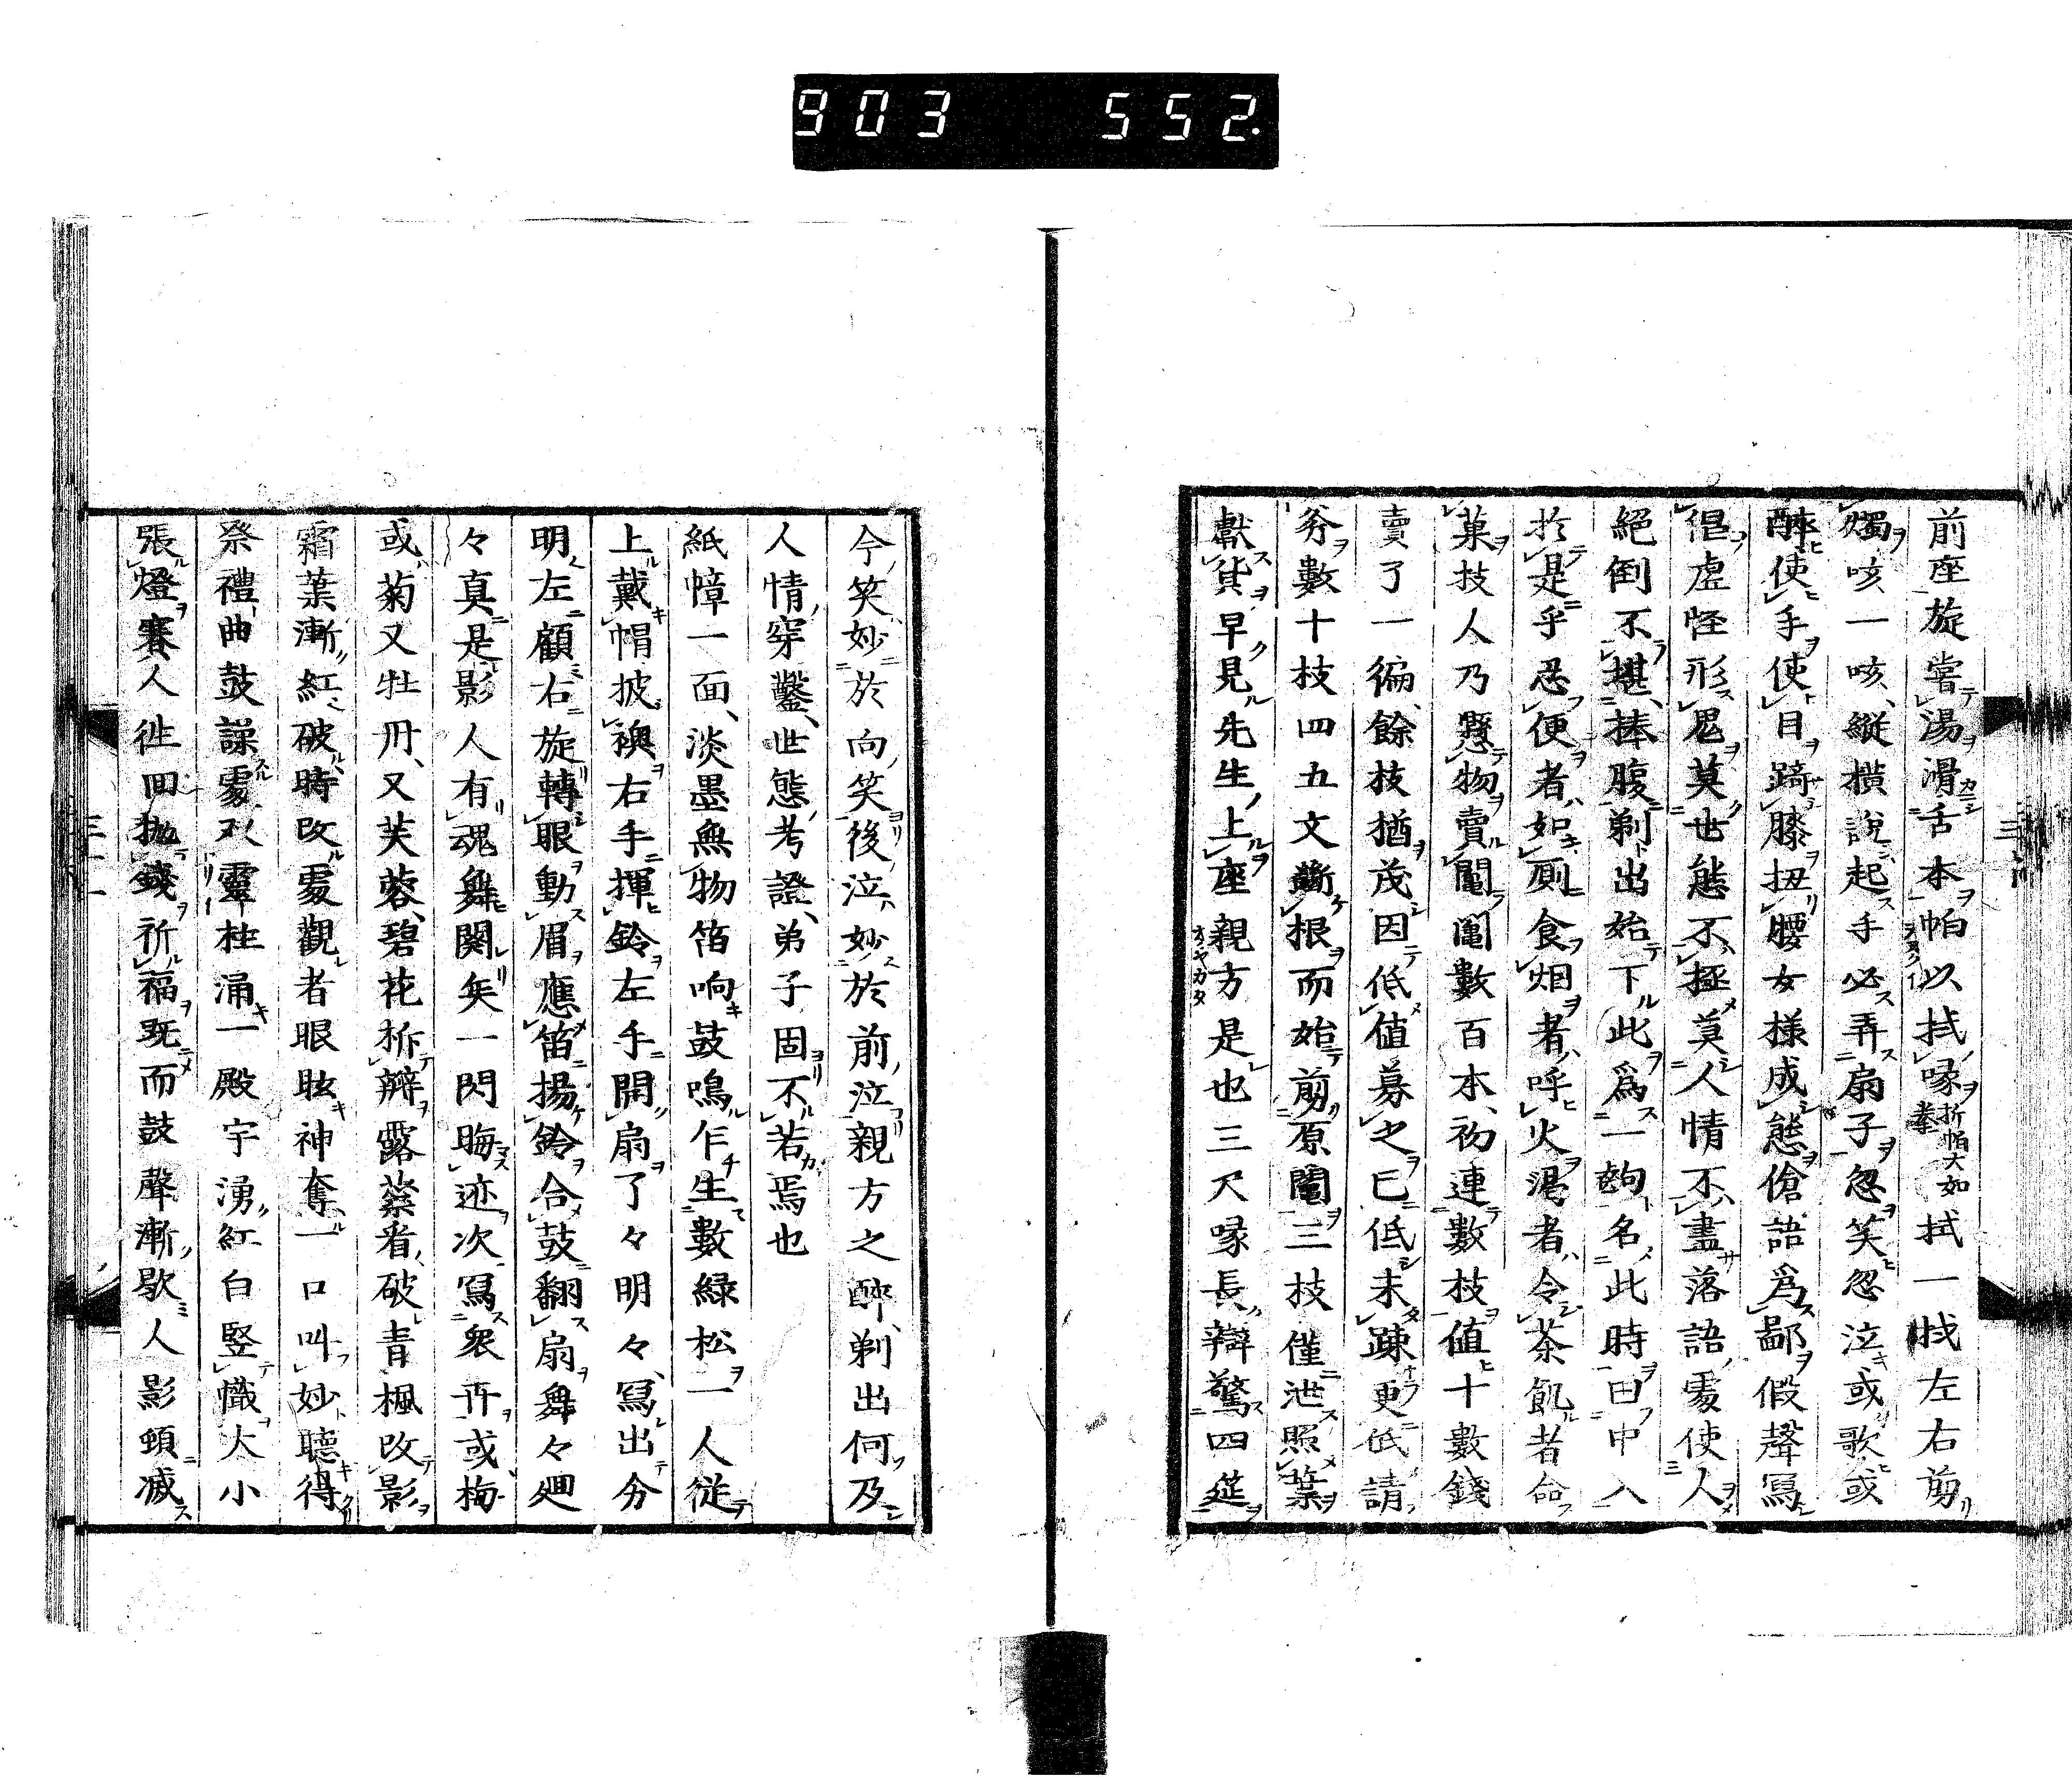 903 552.
前座旋嘗湯滑舌本帕以拭喙折帕大如拳拭一拭左右剪
燭咳一咳縱橫說起手必弄扇子忽笑忽泣或歌或
醉使手使目踦膝扭腰女様成態傖語爲鄙假聲寫
倡虚怪形鬼莫世態不極莫人情不盡落語處使人
絕倒不堪捧腹剃出始下此爲一齣名此時曰中入
於是乎忍便者如厠食烟者呼火渴者令茶飢者命
菓技人乃懸物賣鬮鬮數百本初連數枝値十數錢
賣了一徧餘枝猶茂因低値募之已低未疎更低請
券數十枝四五文斷根而始剪原鬮三枝僅泄照葉
獻貨早見先生上座親方是也三尺喙長辯驚四筵
今笑妙於向笑後泣妙於前泣親方之醉剃出何及
人情穿鑿世態考證弟子固不若焉也
紙幛一面淡墨無物笛响鼓鳴乍生數緑松一人從
上戴帽披襖右手揮鈴左手開扇了々明々寫出分
明左顧右旋轉眼動眉應笛揚鈴合鼓翻扇舞々廻
々真是影人有魂舞闋矣一閃晦迹次寫衆卉或梅
或菊又牡丹又芙蓉碧花拆辦露蘂看破青楓改影
霜葉漸紅破時改處觀者眼眩神奪一口叫妙聽得
祭禮曲鼓譟處双靈柱涌一殿宇湧紅白竪幟大小
張燈賽人徃回抛錢祈福既而鼓聲漸歇人影頓滅